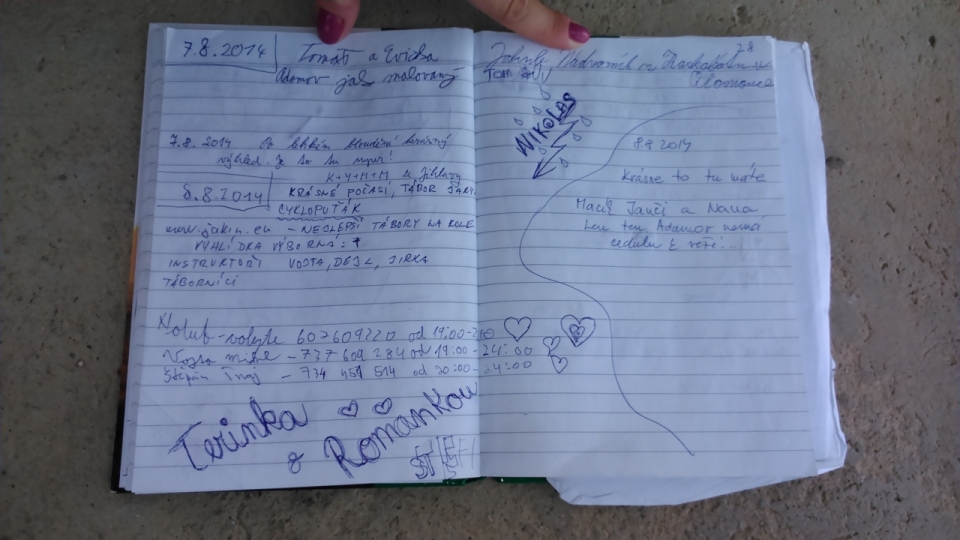 7.8.2014 Tomáš a Evička
Adamov jak malovaný
7.8.2014 Po lehkém bloudění krásný
výhled. Je to tu super!
K+Y+M+M z Jihlavy
8.8.2014 KRÁSNÉ POČASÍ, TÁBOR
CYKLOPUŤÁK
www.jakin.eu - NEJLEPŠÍ TÁBORY NA KOLE
VYHLÍDKA VÝBORNÁ :-)
INSTRUKTOŘI VOJTA, DEJL, JIRKA
TÁBORNÍCI
Holub - volejte 607609220 od 19:00-
Vojta - 737 609 284 od 19:00 - 24:00
Štěpán - 734 451 514 od 20:00 - 4:00
Terinka
& Románkou
28
Tom
NIKOLAS
8.8 2014
Krásne to tu máte
Macič Janči a Nana
len ten Adamov nemá
ceduľu z veže...